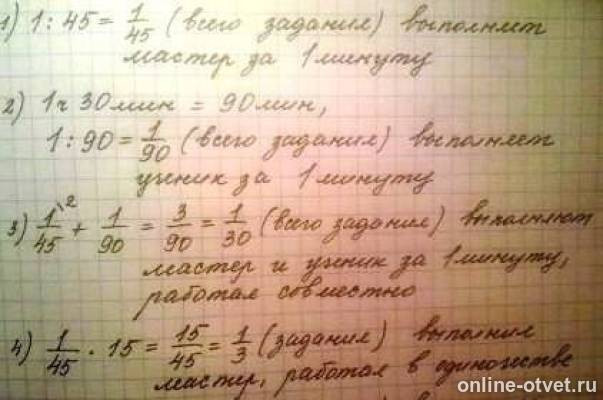 1) 1 : 45 = 1/45 (всего задания) выполняет
мастер за 1 минуту
2) 1ч 30мин = 90мин,
1 : 90 = 1/90 (всего задания) выполняет
ученик за 1 минуту
3) 1/45 \2 + 1/90 = 3/90 = 1/30 (всего задания) выполняют
мастер и ученик за 1 минуту,
работая совместно
4) 1/45 · 15 = 15/45 = 1/3 (задания) выполнил
мастер, работая в одиночестве
online-otvet.ru